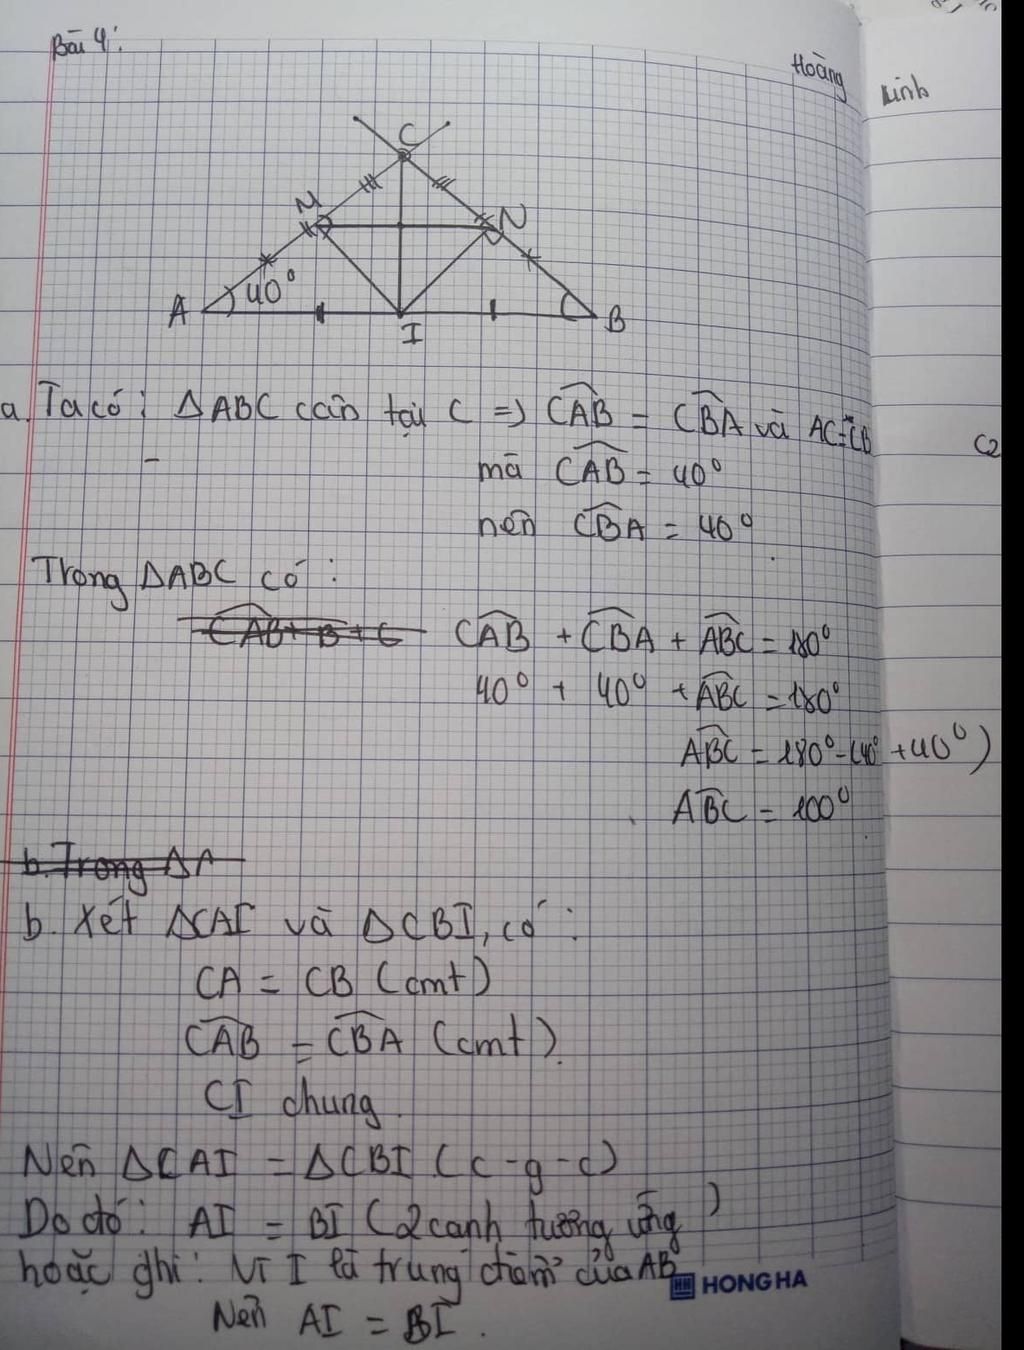 Bài 4:
Hoàng Linh
C
M
N
A
40°
I
B
a. Ta có: ΔABC cân tại C => CAB = CBA và AC=CB
C2
mà CAB = 40°
nên CBA = 40°
Trong ΔABC có:
CAB + B + C CAB + CBA + ABC = 180°
40° + 40° + ABC = 180°
ABC = 180° - (40° + 40°)
ABC = 100°
b. Trong ΔA
b. Xét ΔCAI và ΔCBI, có:
CA = CB (cmt)
CAB = CBA (cmt).
CI chung.
Nên ΔCAI = ΔCBI (c-g-c)
Do đó: AI = BI (2 cạnh tương ứng)
hoặc ghi: Vì I là trung điểm của AB
HONG HA
Nên AI = BI.